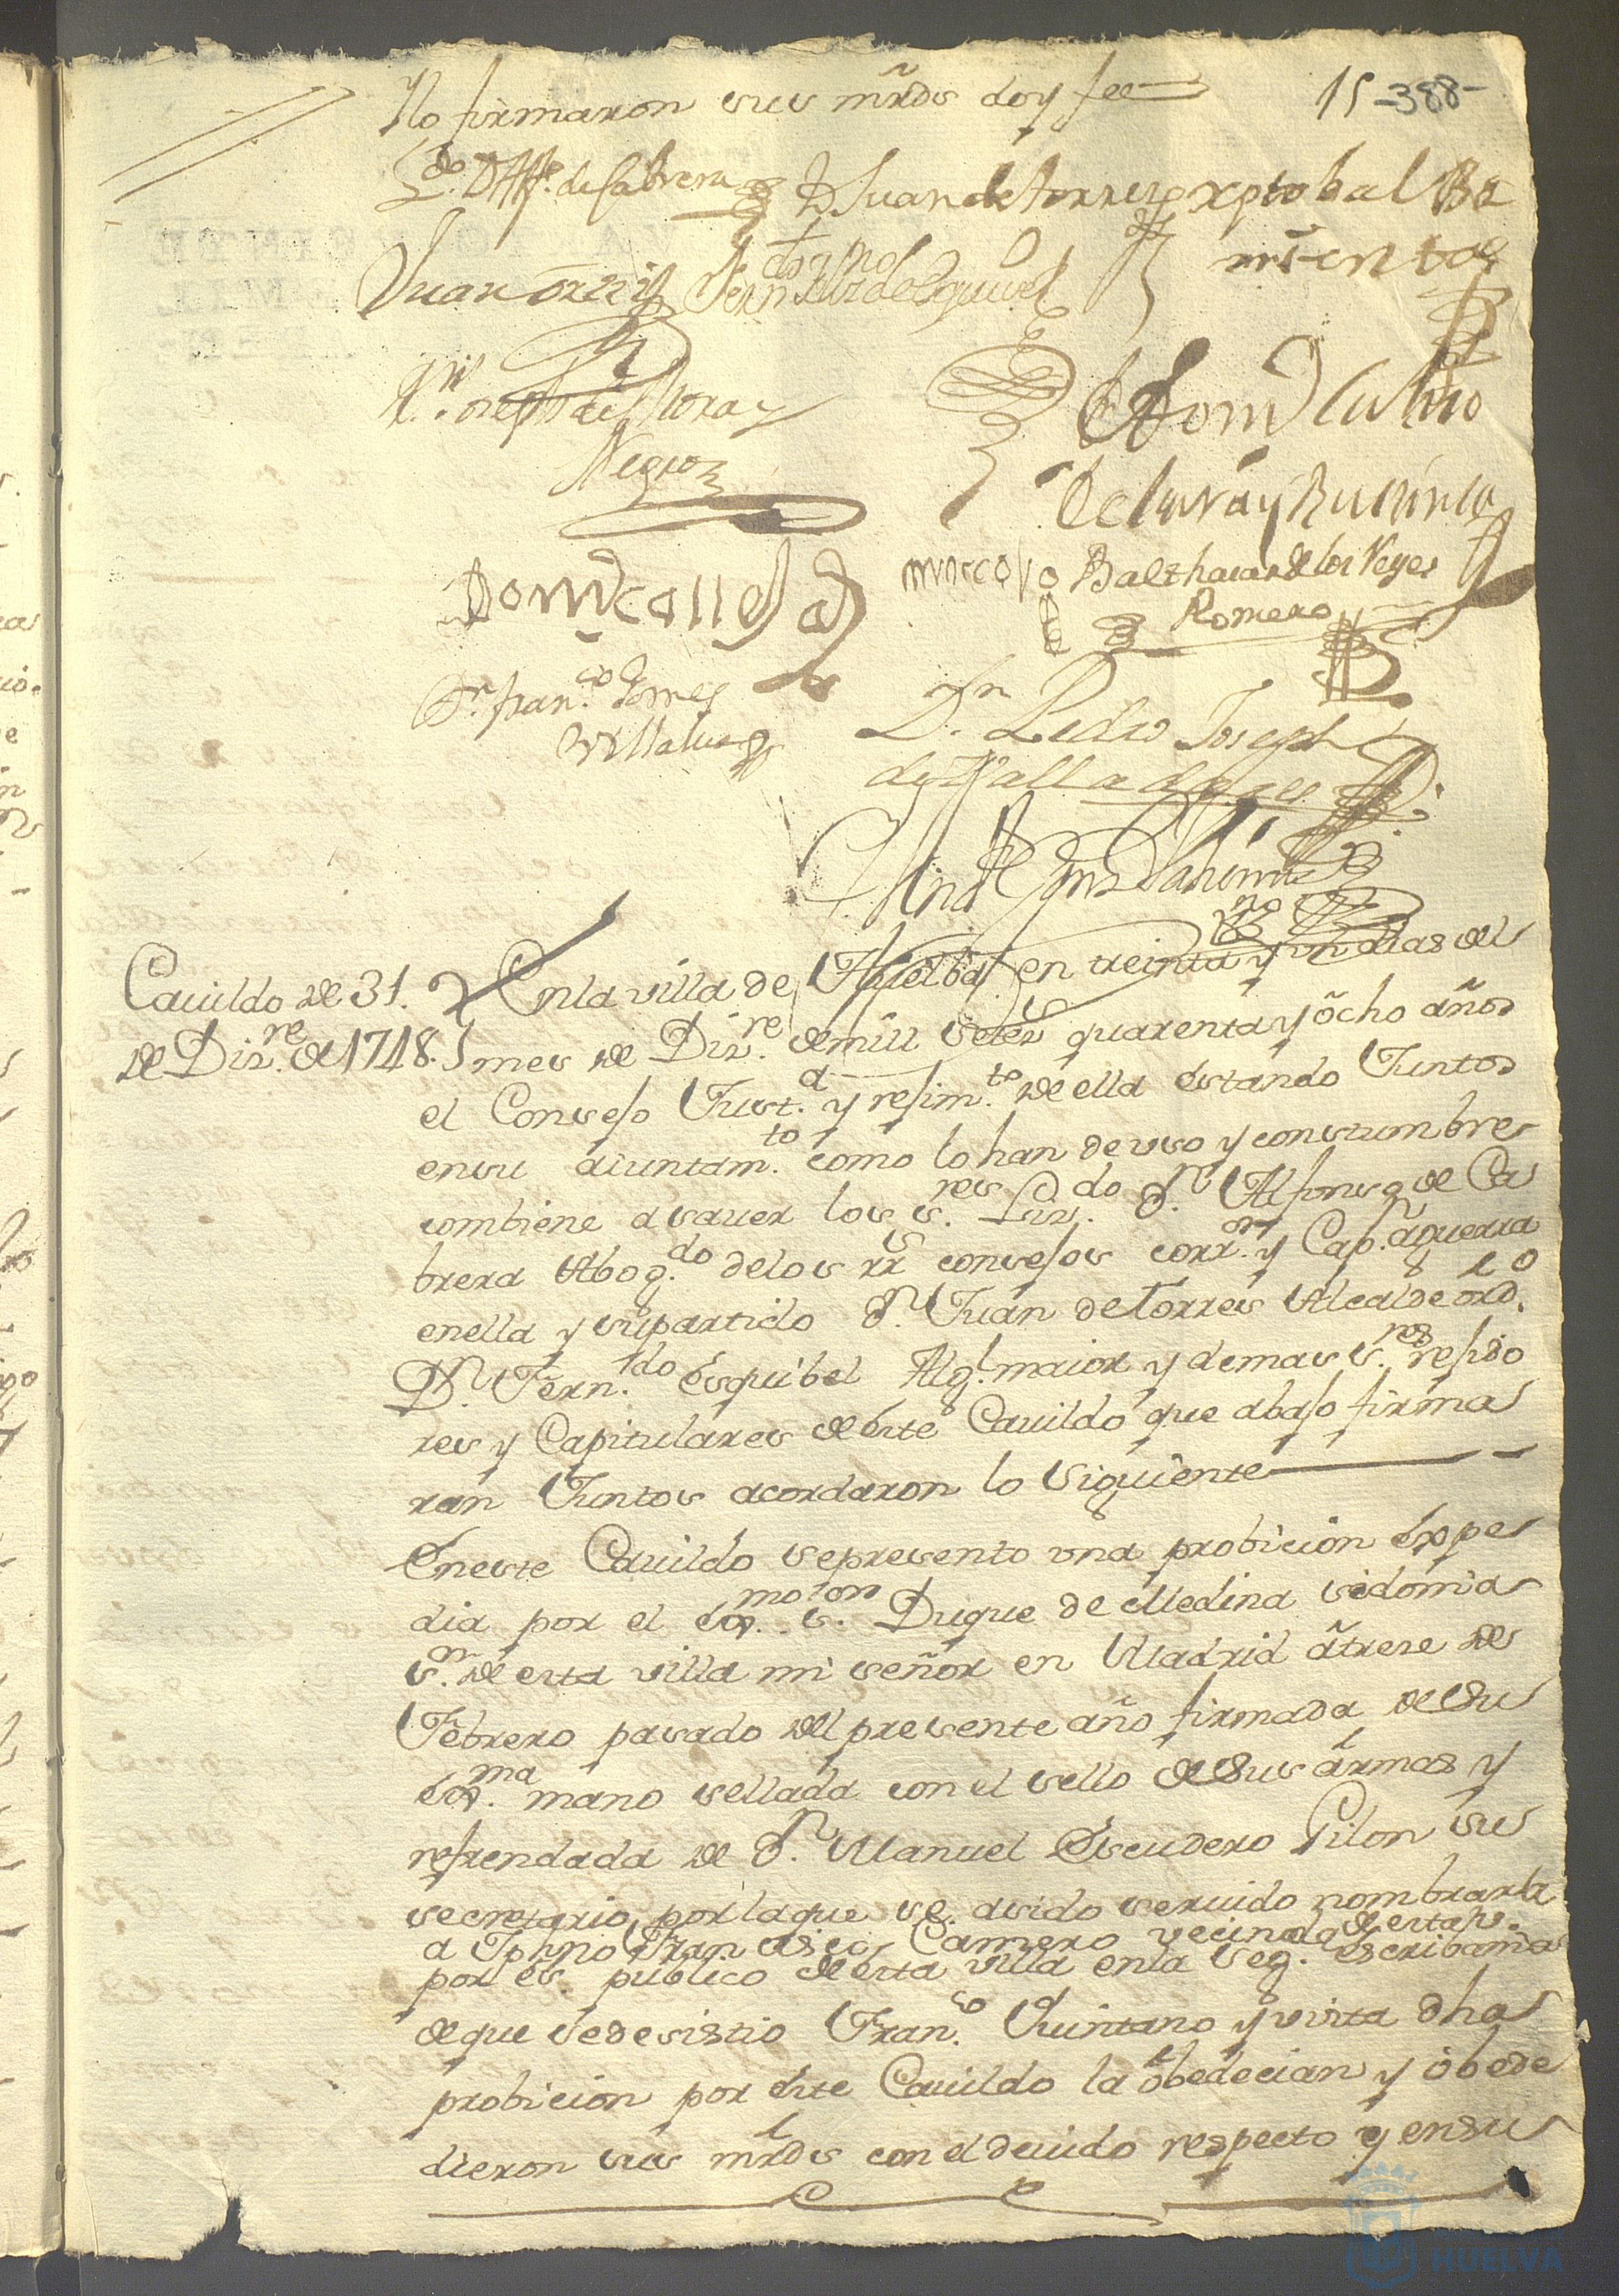 Ylo firmaron sus mrds doy fee
15 -388-
Ldo. D. Alfo. de Cabrera D Juan de torres xptobal Ba
rrientos
Juan Ortiz Fernando de Esquivel
Joseph de Mora y
Negro
Dom
de la ra y
Domo calle
marcos Balthasar de los Reyes
Romero
Dr. fran.co Gomes
Villalua
Dn. Pedro Joseph
de Valladares
Cavildo de 31.
de Diz.re de 1748.
En la villa de Huelba en treinta y un dias del
mes de Diz.re de mill setes quarenta y ôcho años
el Consejo Just.a y rejim.to de ella estando Juntos
en su aiuntam.to como lo han de uso y constumbre
combiene a sauer los s.res Liz.do D.n Alfonso de Ca
brera Abog.do de los rs consejos corr.or y Cap.n aguerra
en ella y su partido D.n Juan de Torres Alcalde ord.o
D.n Fern.do Esquibel Alg.l maior y demas s.res rejido
res y Capitulares de este Cavildo que abajo firma
ran Juntos acordaron lo siguiente
En este Cavildo se presento una probicion expe
dia por el ex.mo s.or Duque de Medina sidonia
s.or de esta villa mi señor en Madrid â trese de
Febrero pasado del presente año firmada de su
ex.ma mano sellada con el sello de sus armas y
refrendada de D.n Manuel Escudero Pilon su
secretario, por la que se a sido seruido nombrar
a Jphno Fran sisco Camero vecino de esta v.
por es. publico de esta villa en la seg. escribania
de que se desistio Fran.co Quintano y vista dha
probicion por este Cavildo la obedecian y obede
dieron sus mrds con el deuido respecto y en su
HUELVA